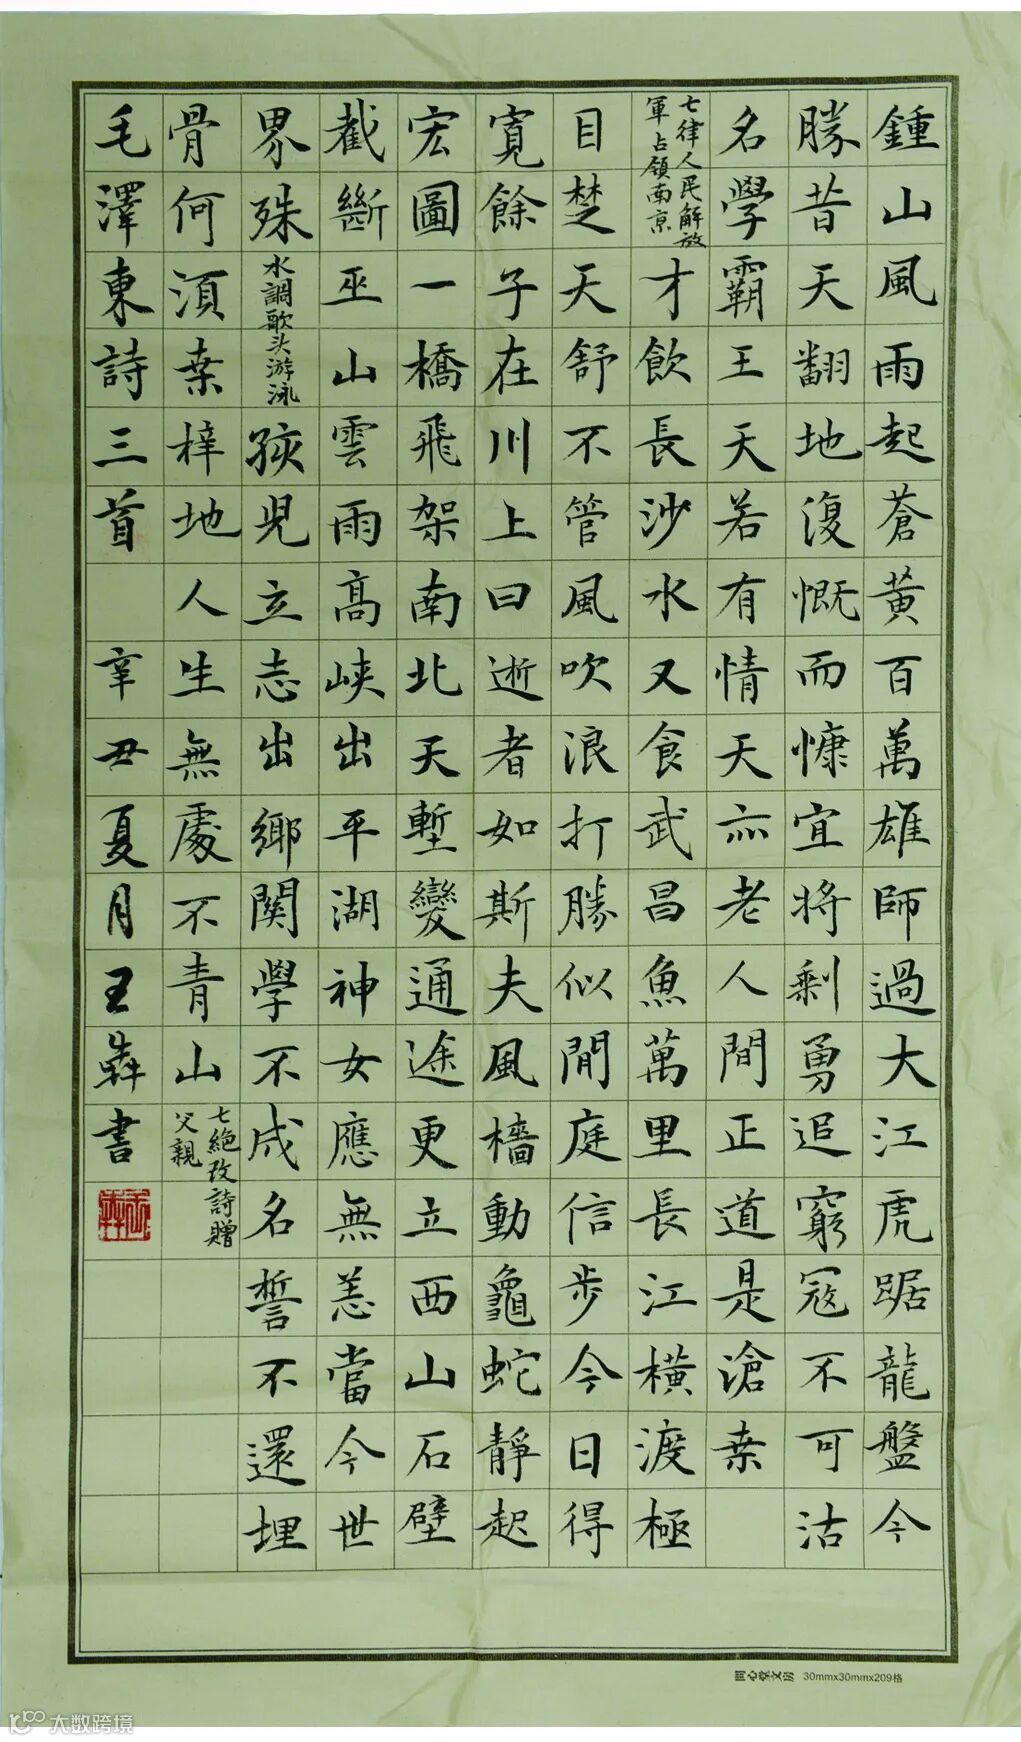 鍾山風雨起蒼黃百萬雄師過大江虎踞龍盤今
勝昔天翻地復慨而慷宜將剩勇追窮寇不可沽
名學霸王天若有情天亦老人間正道是滄桒
七律人民解放
軍占領南京
才飲長沙水又食武昌魚萬里長江橫渡極
目楚天舒不管風吹浪打勝似閒庭信步今日得
寬餘子在川上曰逝者如斯夫風檣動龜蛇靜起
宏圖一橋飛架南北天塹變通途更立西山石壁
截斷巫山雲雨高峽出平湖神女應無恙當今世
界殊
水調歌头游泳
孩児立志出鄉関學不成名誓不還埋
骨何須桒梓地人生無處不青山
七絕改詩贈
父親
毛澤東詩三首 辛丑夏月王犇書
王犇
同心堂文房 30mmx30mmx209格
大数跨境